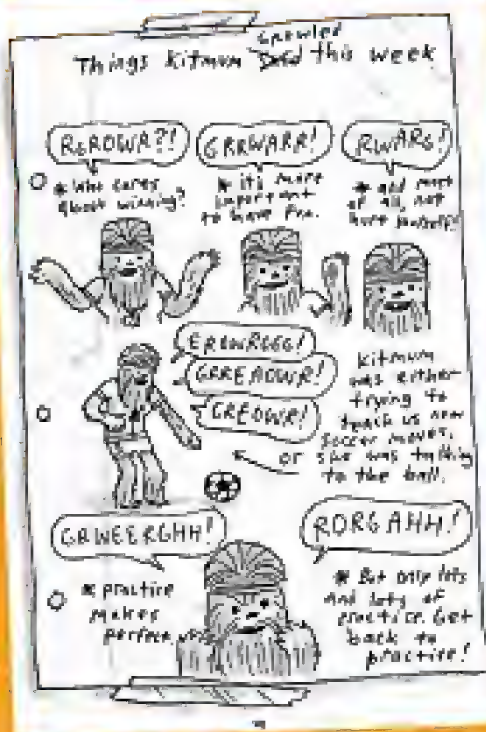 Growled
Things Kitmum Said this week
RGROWR?!
* Who cares
about winning?
GRRWARR!
* it's more
important
to have fun.
RWARG!
* and most
of all, not
hurt yourself!
ERGWRGGG!
GRREAOWR!
GREOWR!
Kitmum
was either
trying to
teach us new
soccer moves,
or she was talking
to the ball.
GRWEERGHH!
* practice
makes
perfect.
RORGAHH!
* But only lots
and lots of
practice. Get
back to
practice!